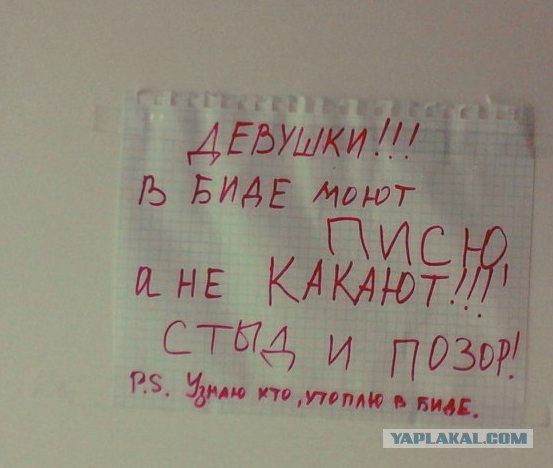 ДЕВУШКИ!!!
В БИДЕ МОЮТ
ПИСЮ
а НЕ КАКАЮТ!!!
СТЫД И ПОЗОР!
P.S. Узнаю кто, утоплю в биде.
YAPLAKAL.COM